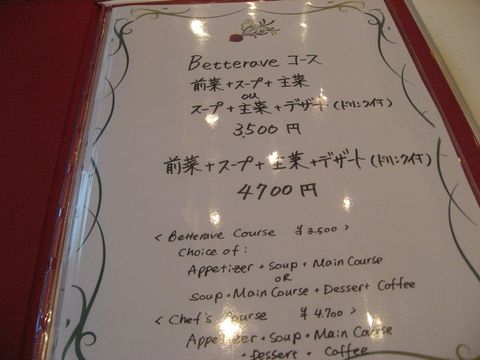 Betterave コース
前菜+スープ+主菜
ou
スープ+主菜+デザート(ドリンク付)
3,500円
前菜+スープ+主菜+デザート(ドリンク付)
4700円
< Betterave Course ¥3.500 >
Choice of:
Appetizer + Soup + Main Course
OR
Soup + Main Course + Dessert Coffee
< Chef's Course ¥4.700 >
Appetizer + Soup + Main Course
+ Dessert + Coffee